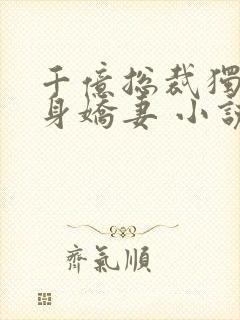 千億總裁獨
身嬌妻 小説
齊氣順